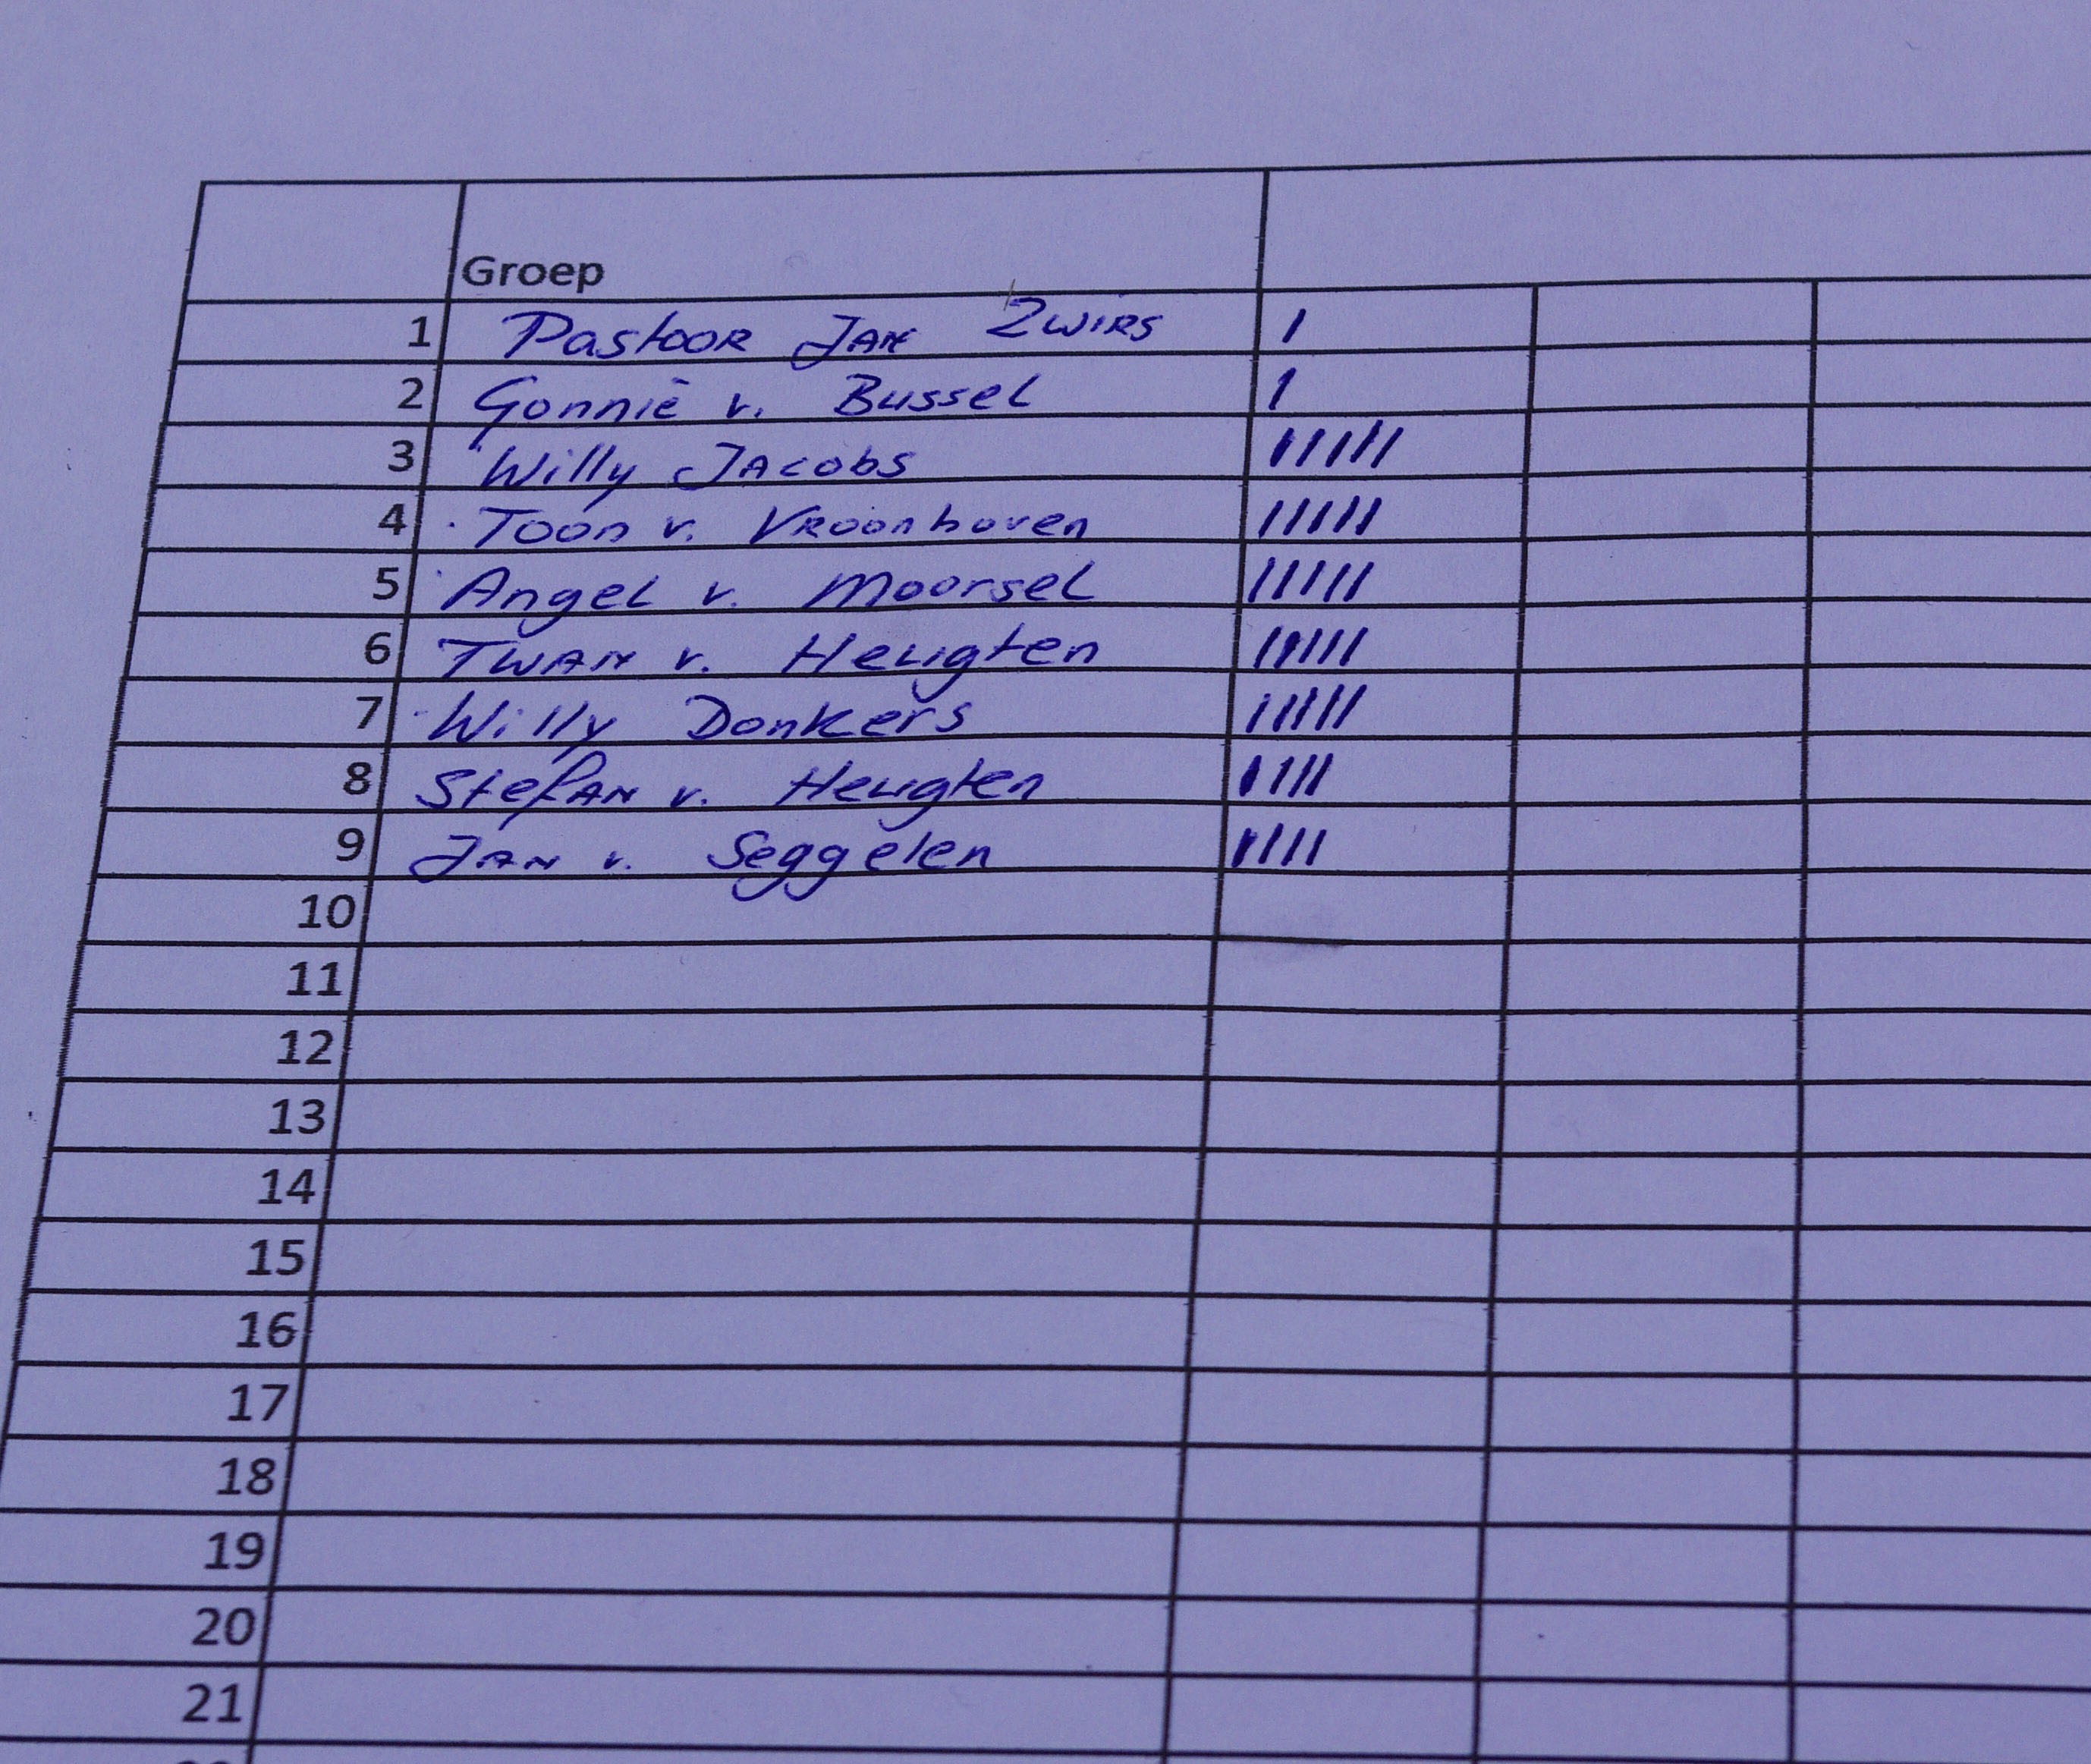 Groep
1 Pastoor Jan Zwirs I
2 Gonnie v. Bussel I
3 Willy Jacobs IIIIII
4 Toon v. Vroonhoven IIIII
5 Angel v. Moorsel IIIII
6 Twan v. Heugten IIIII
7 Willy Donkers IIIII
8 Stefan v. Heugten IIII
9 Jan v. Seggelen IIII
10
11
12
13
14
15
16
17
18
19
20
21